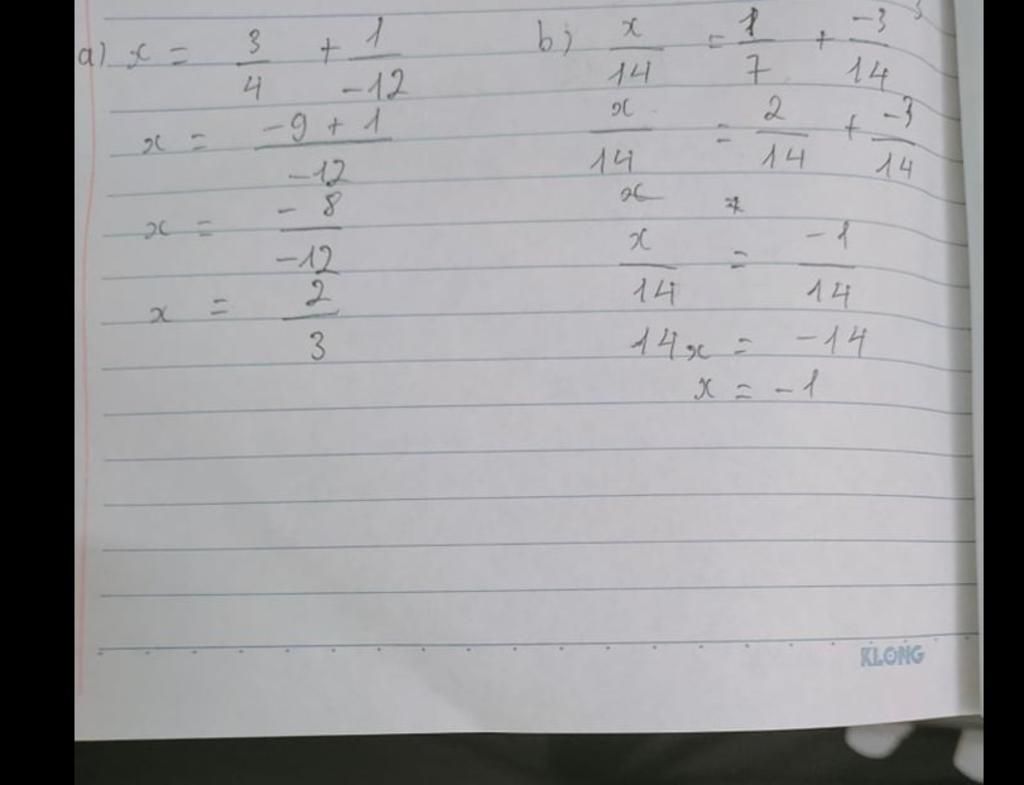 a) x = 3/4 + 1/-12
x = -9 + 1/-12
x = -8/-12
x = 2/3
b) x/14 = 1/7 + -3/14
x/14 = 2/14 + -3/14
x
x/14 = -1/14
14x = -14
x = -1
KLONG